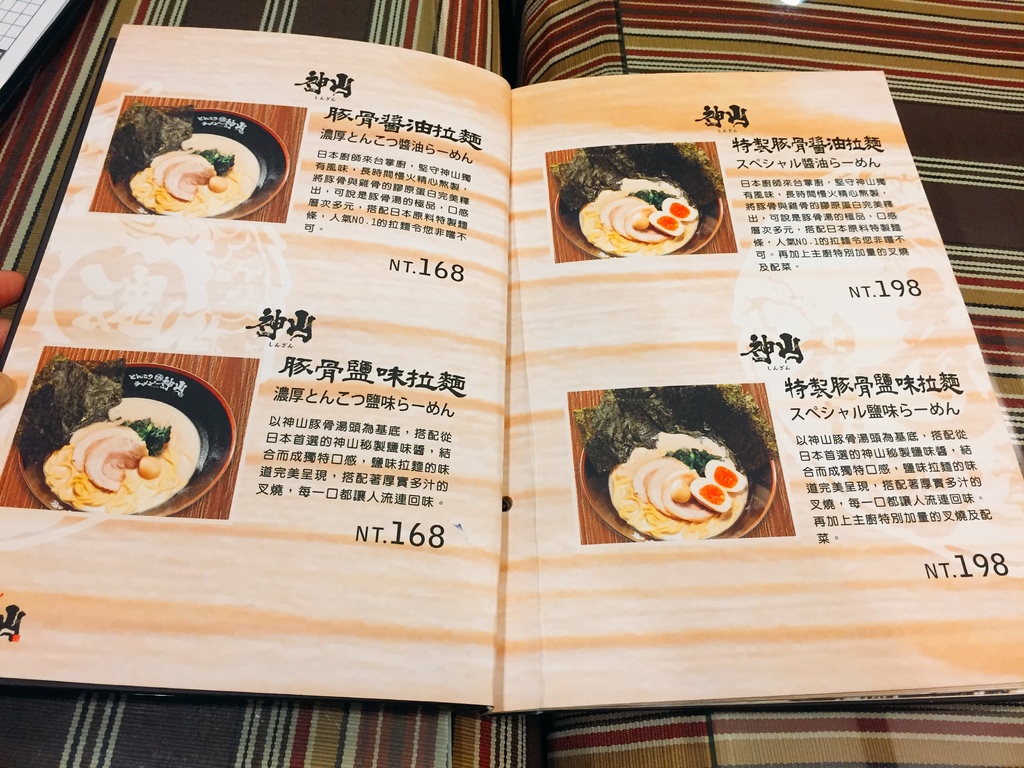 神山
しんざん
豚骨醬油拉麵
濃厚とんこつ醬油らーめん
日本廚師來台掌廚，堅守神山獨
有風味，長時間慢火精心熬製，
將豚骨與雞骨的膠原蛋白完美釋
出，可說是豚骨湯的極品，口感
層次多元，搭配日本原料特製麵
條，人氣NO.1的拉麵令您非嚐不
可。
NT.168
神山
しんざん
豚骨鹽味拉麵
濃厚とんこつ鹽味らーめん
以神山豚骨湯頭為基底，搭配從
日本首選的神山秘製鹽味醬，結
合而成獨特口感，鹽味拉麵的味
道完美呈現，搭配著厚實多汁的
叉燒，每一口都讓人流連回味。
NT.168
神山
しんざん
特製豚骨醬油拉麵
スペシャル醬油らーめん
日本廚師來台掌廚，堅守神山獨
有風味，長時間慢火精心熬製，
將豚骨與雞骨的膠原蛋白完美釋
出，可說是豚骨湯的極品，口感
層次多元，搭配日本原料特製麵
條，人氣NO.1的拉麵令您非嚐不
可。再加上主廚特別加量的叉燒
及配菜。
NT.198
神山
しんざん
特製豚骨鹽味拉麵
スペシャル鹽味らーめん
以神山豚骨湯頭為基底，搭配從
日本首選的神山秘製鹽味醬，結
合而成獨特口感，鹽味拉麵的味
道完美呈現，搭配著厚實多汁的
叉燒，每一口都讓人流連回味。
再加上主廚特別加量的叉燒及配
菜。
NT.198
とんこつ
ラーメン 神山
とんこつ
ラーメン 神山
山